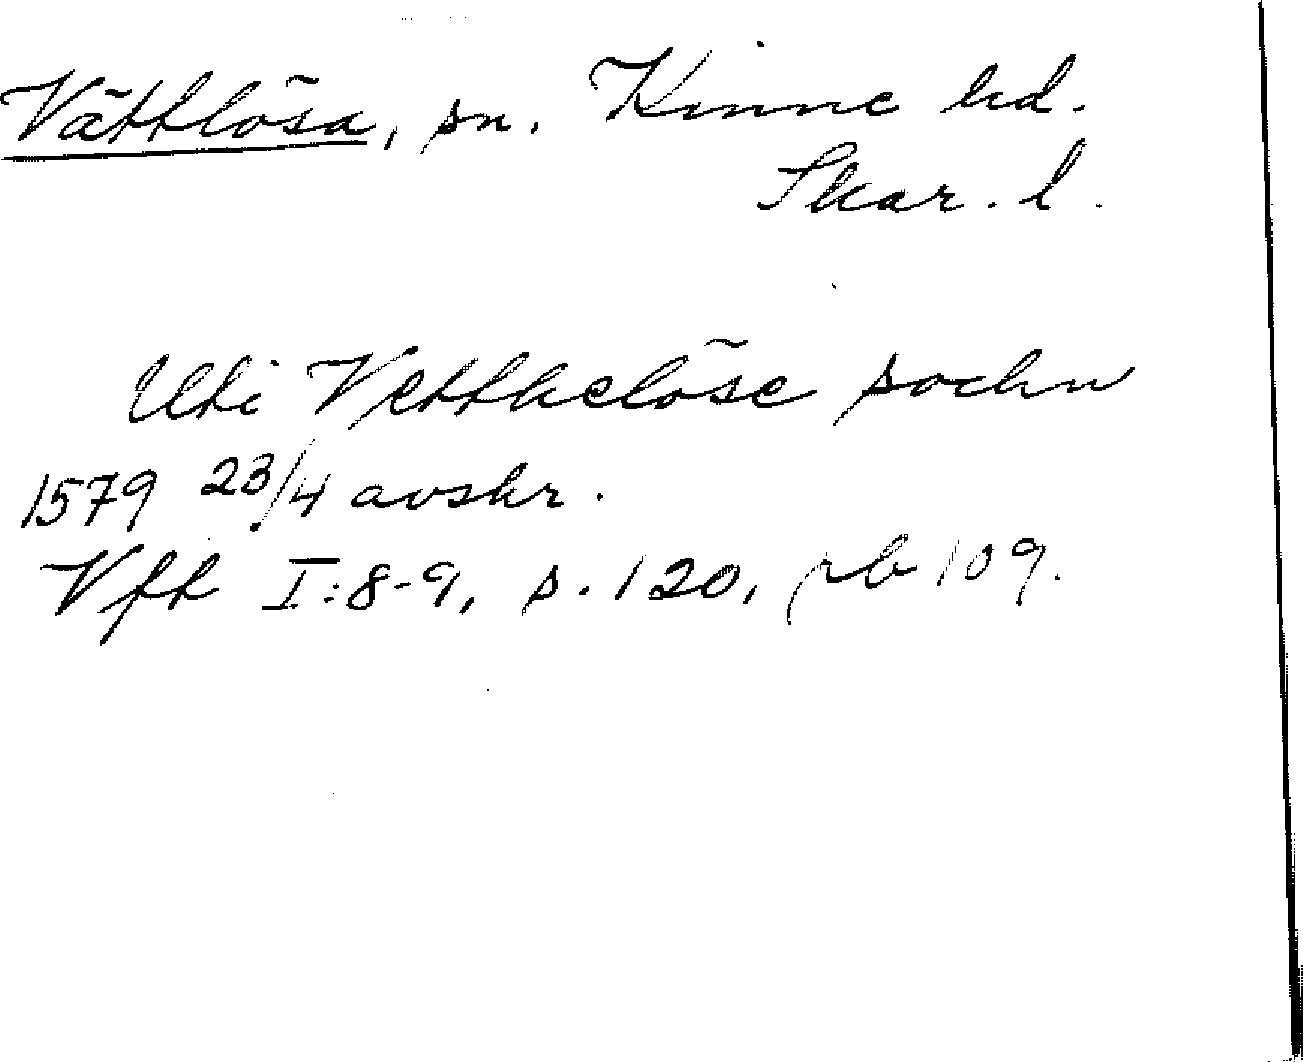 Vättlösa, sn. Kinne hd.
Skar. l.
Uti Vettkelöse sochn
1579 23/4 avskr.
Vft I:8-9, s. 120, nb 109.